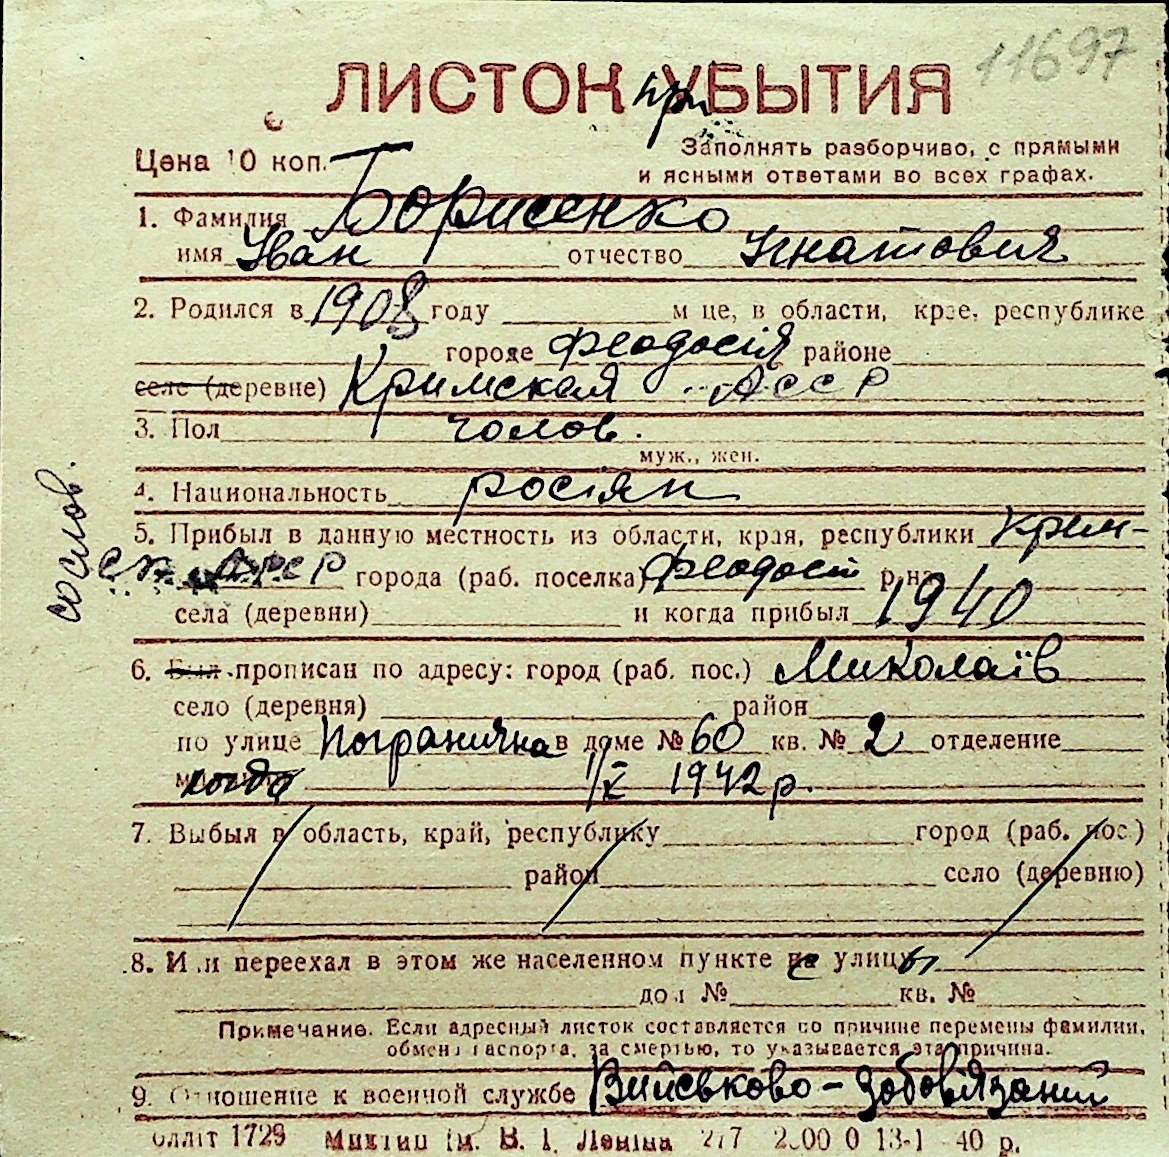 11697
ЛИСТОК при УБЫТИЯ
Цена 10 коп. Заполнять разборчиво, с прямыми
и ясными ответами во всех графах.
1. Фамилия Борисенко
имя Іван отчество Ігнатович
2. Родился в 1908 году м це, в области, крае, республике
городе Феодосія районе
селе (деревне) Кримская АССР
3. Пол чолов.
муж., жен.
4. Национальность росіян
5. Прибыл в данную местность из области, края, республики Крим-
ск. АРСР города (раб. поселка) Феодосії р-на
села (деревни) и когда прибыл 1940
сослов.
6. Был прописан по адресу: город (раб. пос.) Миколаїв
село (деревня) район
по улице Погранична в доме № 60 кв. № 2 отделение
когда 1/X 1942 р.
7. Выбыл в область, край, республику город (раб. пос.)
район село (деревню)
8. Или переехал в этом же населенном пункте с улицы
дом № кв. №
Примечание. Если адресный листок составляется по причине перемены фамилии,
обмена паспорта, за смертью, то указывается эта причина.
9. Отношение к военной службе Військово-зобов'язаний
1729 ім. В. І. Леніна 2/7 13-1 40 р.